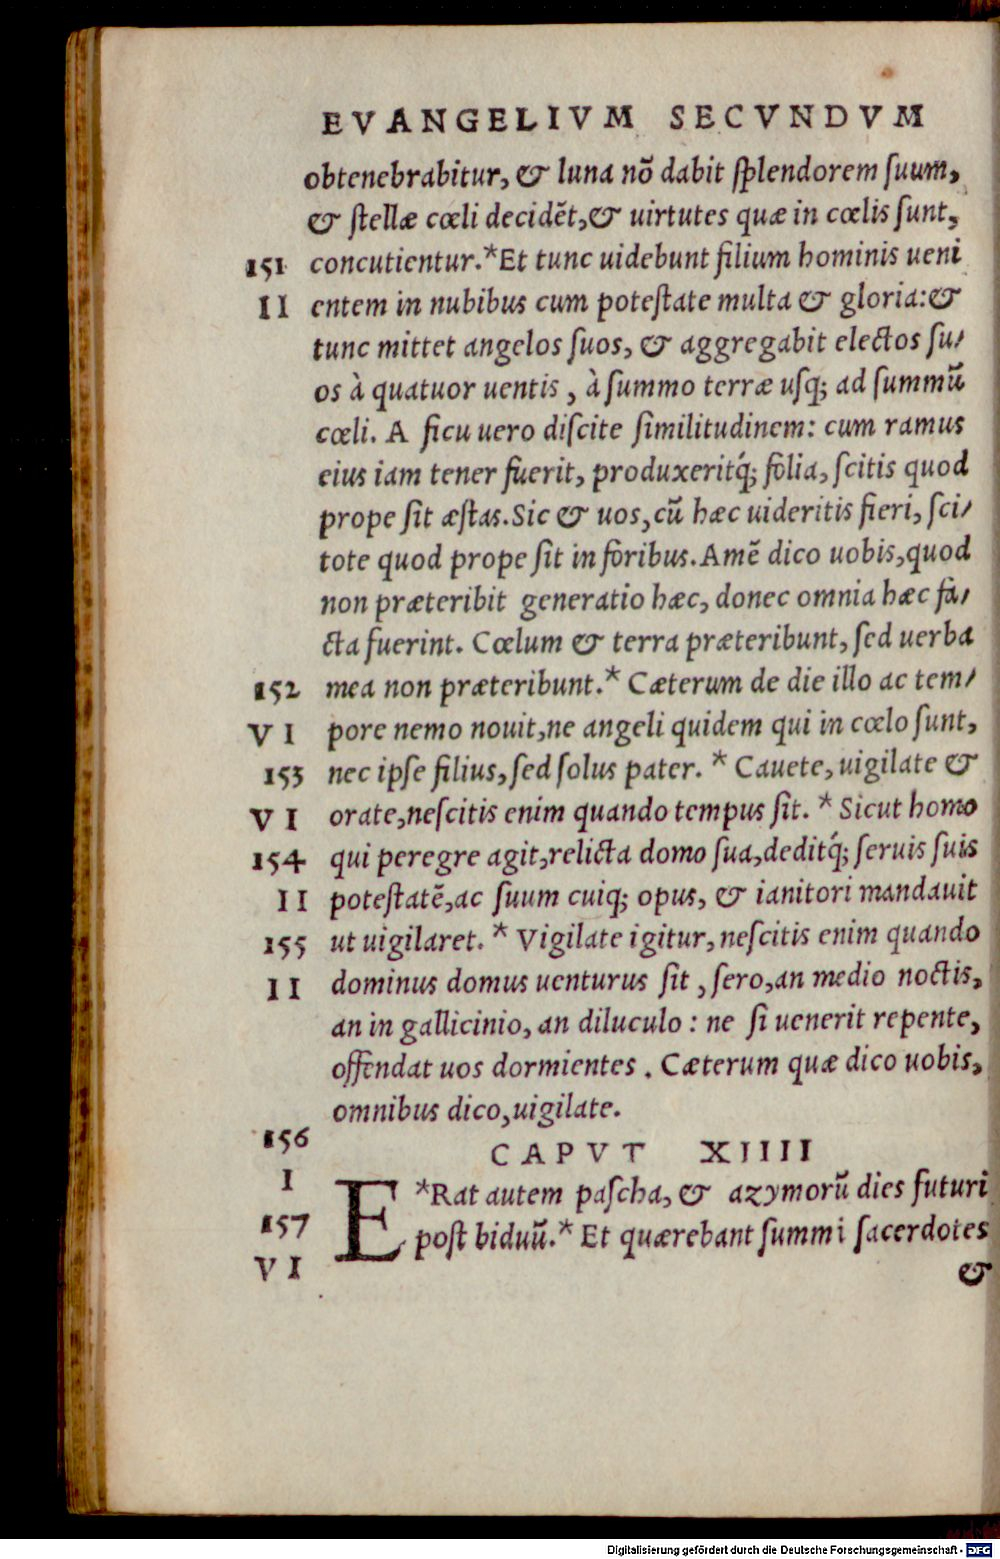 EVANGELIVM SECVNDVM
obtenebrabitur, & luna nõ dabit ſplendorem ſuum,
& ſtellæ cœli decidẽt,& uirtutes quæ in cœlis ſunt,
151 concutientur.*Et tunc uidebunt filium hominis ueni
II entem in nubibus cum poteſtate multa & gloria:&
tunc mittet angelos ſuos, & aggregabit electos ſu/
os à quatuor uentis, à ſummo terræ uſq; ad ſummũ
cœli. A ficu uero diſcite ſimilitudinem: cum ramus
eius iam tener fuerit, produxeritq́; folia, ſcitis quod
prope ſit æſtas. Sic & uos, cũ hæc uideritis fieri, ſci/
tote quod prope ſit in foribus. Amẽ dico uobis,quod
non præteribit generatio hæc, donec omnia hæc fa/
cta fuerint. Cœlum & terra præteribunt, ſed uerba
152 mea non præteribunt.* Cæterum de die illo ac tem/
VI pore nemo nouit,ne angeli quidem qui in cœlo ſunt,
153 nec ipſe filius, ſed ſolus pater. * Cauete, uigilate &
VI orate,neſcitis enim quando tempus ſit. * Sicut homo
154 qui peregre agit,relicta domo ſua,deditq́; ſeruis ſuis
II poteſtatẽ,ac ſuum cuiq; opus, & ianitori mandauit
155 ut uigilaret. * Vigilate igitur, neſcitis enim quando
II dominus domus uenturus ſit, ſero,an medio noctis,
an in gallicinio, an diluculo : ne ſi uenerit repente,
offendat uos dormientes. Cæterum quæ dico uobis,
omnibus dico,uigilate.
156 CAPVT XIIII
I E*Rat autem paſcha, & azymorũ dies futuri
157 poſt biduũ.* Et quærebant ſummi ſacerdotes
VI &
Digitalisierung gefördert durch die Deutsche Forschungsgemeinschaft - DFG